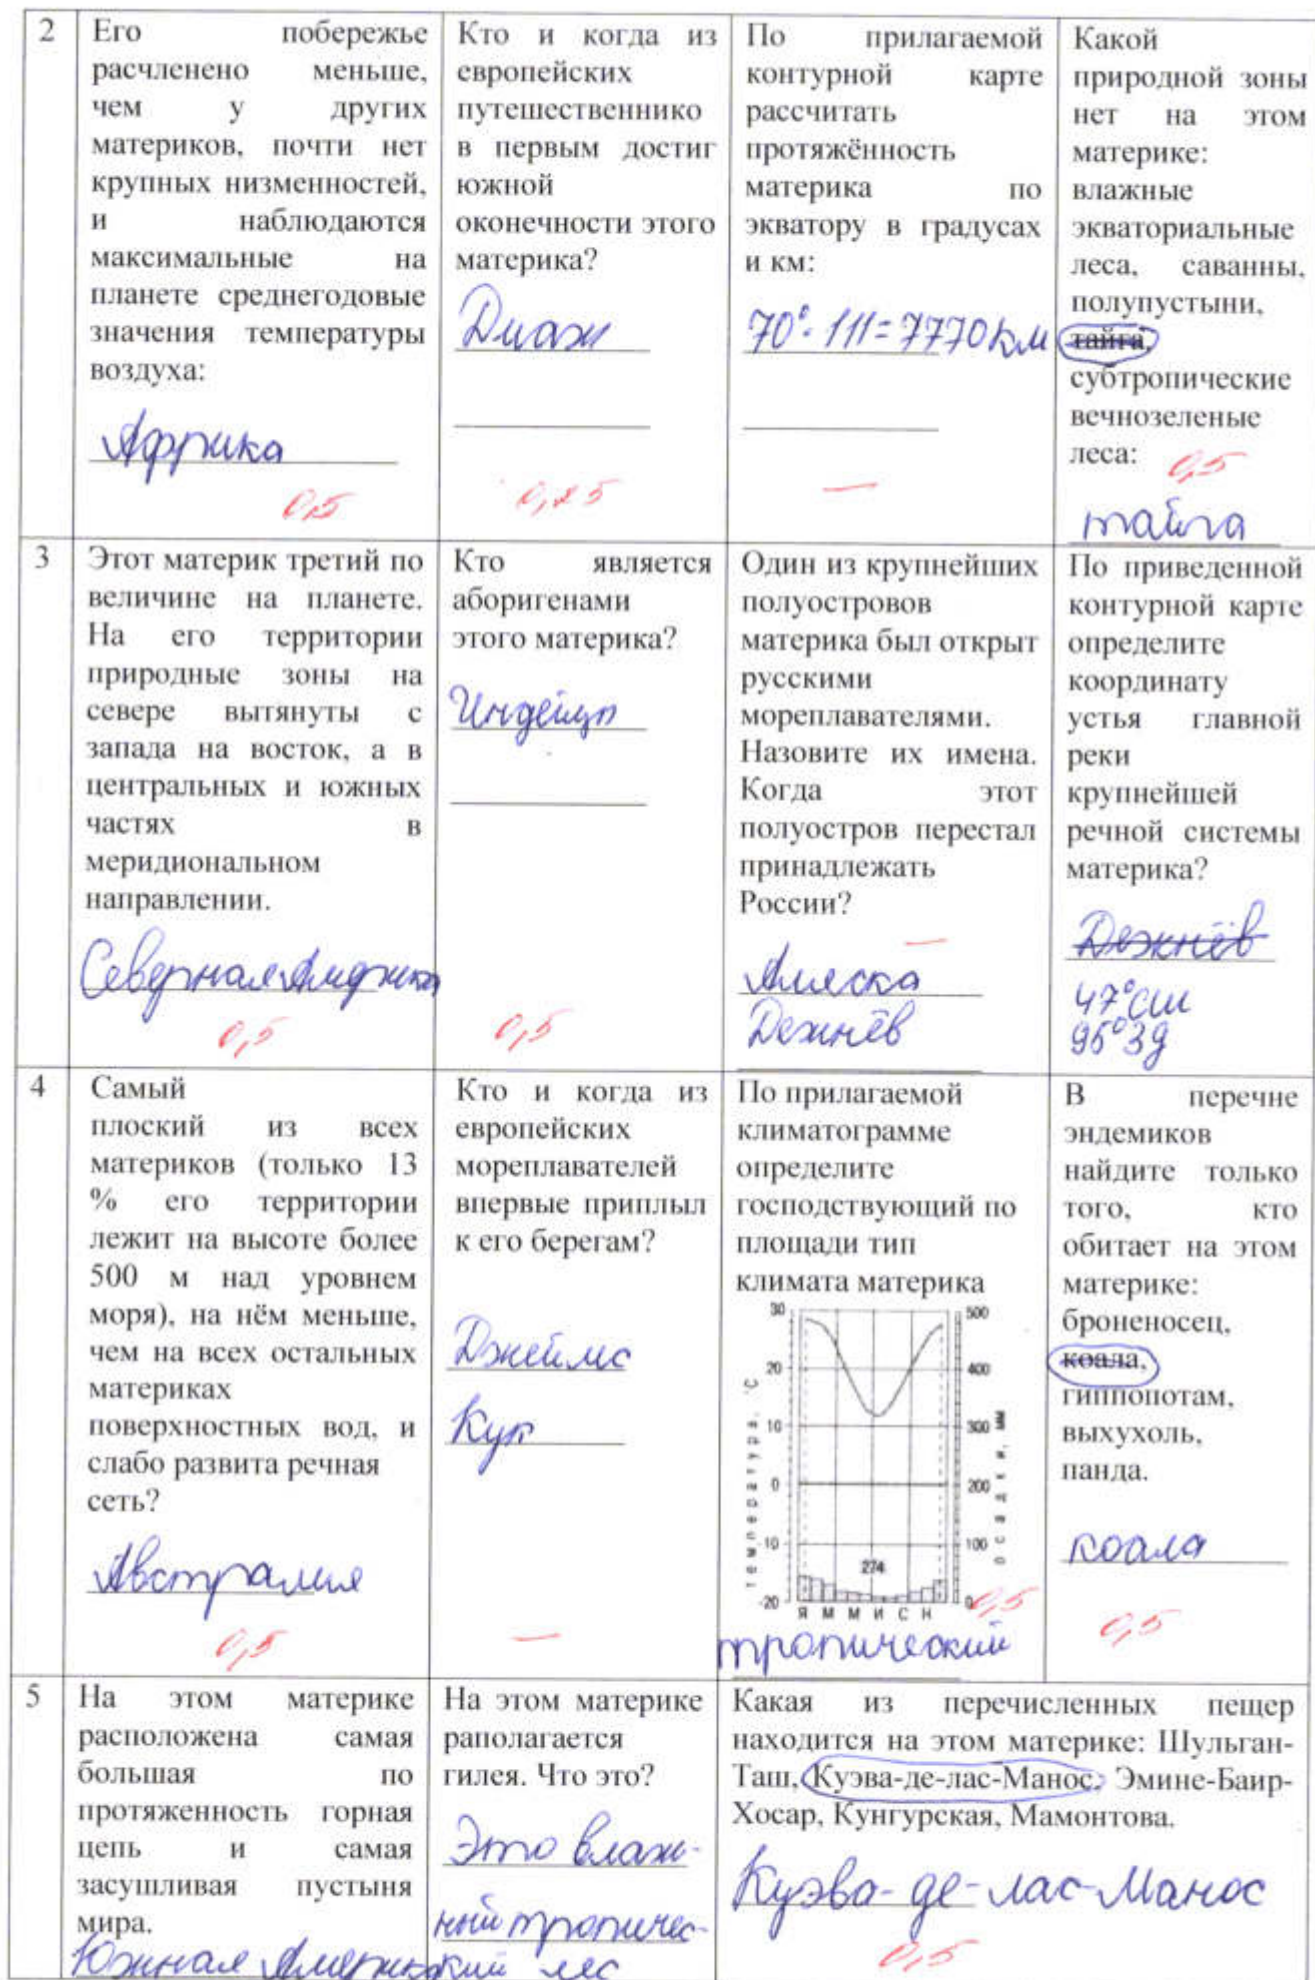 2
Его побережье
расчленено меньше,
чем у других
материков, почти нет
крупных низменностей,
и наблюдаются
максимальные на
планете среднегодовые
значения температуры
воздуха:
Африка
0,5
Кто и когда из
европейских
путешественнико
в первым достиг
южной
оконечности этого
материка?
Диаж
0,25
По прилагаемой
контурной карте
рассчитать
протяжённость
материка по
экватору в градусах
и км:
70°·111=7770км
—
Какой
природной зоны
нет на этом
материке:
влажные
экваториальные
леса, саванны,
полупустыни,
тайга,
субтропические
вечнозеленые
леса:
0,5
тайга
3
Этот материк третий по
величине на планете.
На его территории
природные зоны на
севере вытянуты с
запада на восток, а в
центральных и южных
частях в
меридиональном
направлении.
Северная Америка
0,5
Кто является
аборигенами
этого материка?
Индейцы
0,5
Один из крупнейших
полуостровов
материка был открыт
русскими
мореплавателями.
Назовите их имена.
Когда этот
полуостров перестал
принадлежать
России?
—
Аляска
Дежнёв
По приведенной
контурной карте
определите
координату
устья главной
реки
крупнейшей
речной системы
материка?
Дежнёв
47°сш
95°зд
4
Самый
плоский из всех
материков (только 13
% его территории
лежит на высоте более
500 м над уровнем
моря), на нём меньше,
чем на всех остальных
материках
поверхностных вод, и
слабо развита речная
сеть?
Австралия
0,5
Кто и когда из
европейских
мореплавателей
впервые приплыл
к его берегам?
Джеймс
Кук
—
По прилагаемой
климатограмме
определите
господствующий по
площади тип
климата материка
30
20
10
0
-10
-20
температура, °C
500
400
300
200
100
0
осадки, мм
274
Я М М И С Н
0,5
тропический
В перечне
эндемиков
найдите только
того, кто
обитает на этом
материке:
броненосец,
коала,
гиппопотам,
выхухоль,
панда.
коала
0,5
5
На этом материке
расположена самая
большая по
протяженность горная
цепь и самая
засушливая пустыня
мира.
Южная Америка
На этом материке
раполагается
гилея. Что это?
Это влаж-
ный тропичес-
кий лес
Какая из перечисленных пещер
находится на этом материке: Шульган-
Таш, Куэва-де-лас-Манос, Эмине-Баир-
Хосар, Кунгурская, Мамонтова.
Куэва-де-лас-Манос
0,5